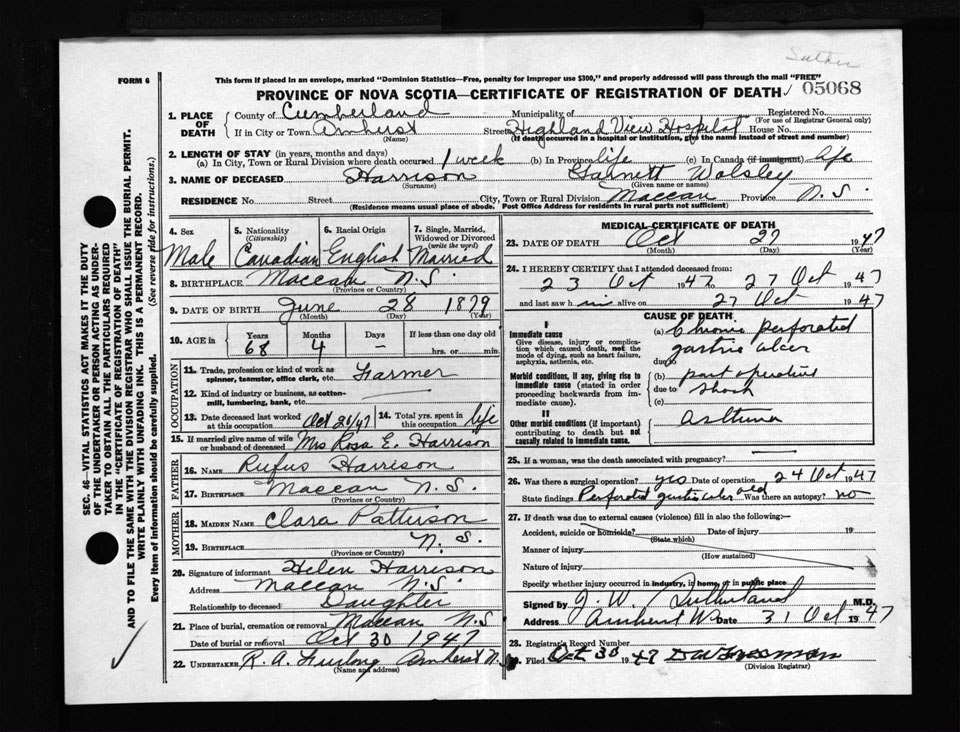 Suther
FORM 6
This form if placed in an envelope, marked "Dominion Statistics—Free, penalty for improper use $300," and properly addressed will pass through the mail "FREE"
PROVINCE OF NOVA SCOTIA—CERTIFICATE OF REGISTRATION OF DEATH 05068
SEC. 46—VITAL STATISTICS ACT MAKES IT THE DUTY
OF THE UNDERTAKER OR PERSON ACTING AS UNDER-
TAKER TO OBTAIN ALL THE PARTICULARS REQUIRED
IN THE "CERTIFICATE OF REGISTRATION OF DEATH"
AND TO FILE THE SAME WITH THE DIVISION REGISTRAR WHO SHALL ISSUE THE BURIAL PERMIT.
WRITE PLAINLY WITH UNFADING INK. THIS IS A PERMANENT RECORD.
Every item of information should be carefully supplied. (See reverse side for instructions.)
1. PLACE OF DEATH County of Cumberland Municipality of Registered No.
(For use of Registrar General only)
If in City or Town Amherst Street Highland View Hospital House No.
(Name) (If death occurred in a hospital or institution, give the name instead of street and number)
2. LENGTH OF STAY (in years, months and days)
(a) In City, Town or Rural Division where death occurred 1 week (b) In Province life (c) In Canada (if immigrant) life
3. NAME OF DECEASED Harrison Garnett Wolsley
(Surname) (Given name or names)
RESIDENCE No. Street City, Town or Rural Division Maccan Province N.S.
(Residence means usual place of abode. Post Office Address for residents in rural parts not sufficient)
4. Sex 5. Nationality (Citizenship) 6. Racial Origin 7. Single, Married, Widowed or Divorced (write the word)
Male Canadian English Married
8. BIRTHPLACE Maccan N.S.
(Province or Country)
9. DATE OF BIRTH June 28 1879
(Month) (Day) (Year)
10. AGE in Years Months Days If less than one day old
68 4 — hrs. or min.
OCCUPATION
11. Trade, profession or kind of work as spinner, teamster, office clerk, etc. Farmer
12. Kind of industry or business, as cotton-mill, lumbering, bank, etc.
13. Date deceased last worked at this occupation Oct 20/47 14. Total yrs. spent in this occupation life
15. If married give name of wife or husband of deceased Mrs Rosa E. Harrison
FATHER
16. NAME Rufus Harrison
17. BIRTHPLACE Maccan N.S.
(Province or Country)
MOTHER
18. MAIDEN NAME Clara Patterson
19. BIRTHPLACE N.S.
(Province or Country)
20. Signature of informant Helen Harrison
Address Maccan N.S.
Relationship to deceased Daughter
21. Place of burial, cremation or removal Maccan N.S
Date of burial or removal Oct 30 1947
22. UNDERTAKER R. A. Furlong Amherst N.
(Name and address)
MEDICAL CERTIFICATE OF DEATH
23. DATE OF DEATH Oct 27 1947
(Month) (Day) (Year)
24. I HEREBY CERTIFY that I attended deceased from:
23 Oct 1947 to 27 Oct 1947
and last saw him alive on 27 Oct 1947
CAUSE OF DEATH
I
Immediate cause (a) Chronic perforated
Give disease, injury or complication which caused death, not the mode of dying, such as heart failure, asphyxia, asthenia, etc. gastric ulcer
due to
Morbid conditions, if any, giving rise to immediate cause (stated in order proceeding backwards from immediate cause). (b) post operative
due to shock
(c)
II
Other morbid conditions (if important) contributing to death but not causally related to immediate cause. Asthma
25. If a woman, was the death associated with pregnancy? —
26. Was there a surgical operation? yes Date of operation 24 Oct 1947
State findings Perforated gastric ulcer Was there an autopsy? no
27. If death was due to external causes (violence) fill in also the following:—
Accident, suicide or homicide? Date of injury 19
(State which)
Manner of injury
(How sustained)
Nature of injury
Specify whether injury occurred in industry, in home, or in public place
Signed by J. W. Sutherland M.D.
Address Amherst Date 31 Oct 1947
28. Registrar's Record Number
Filed Oct 30 1947
(Division Registrar)